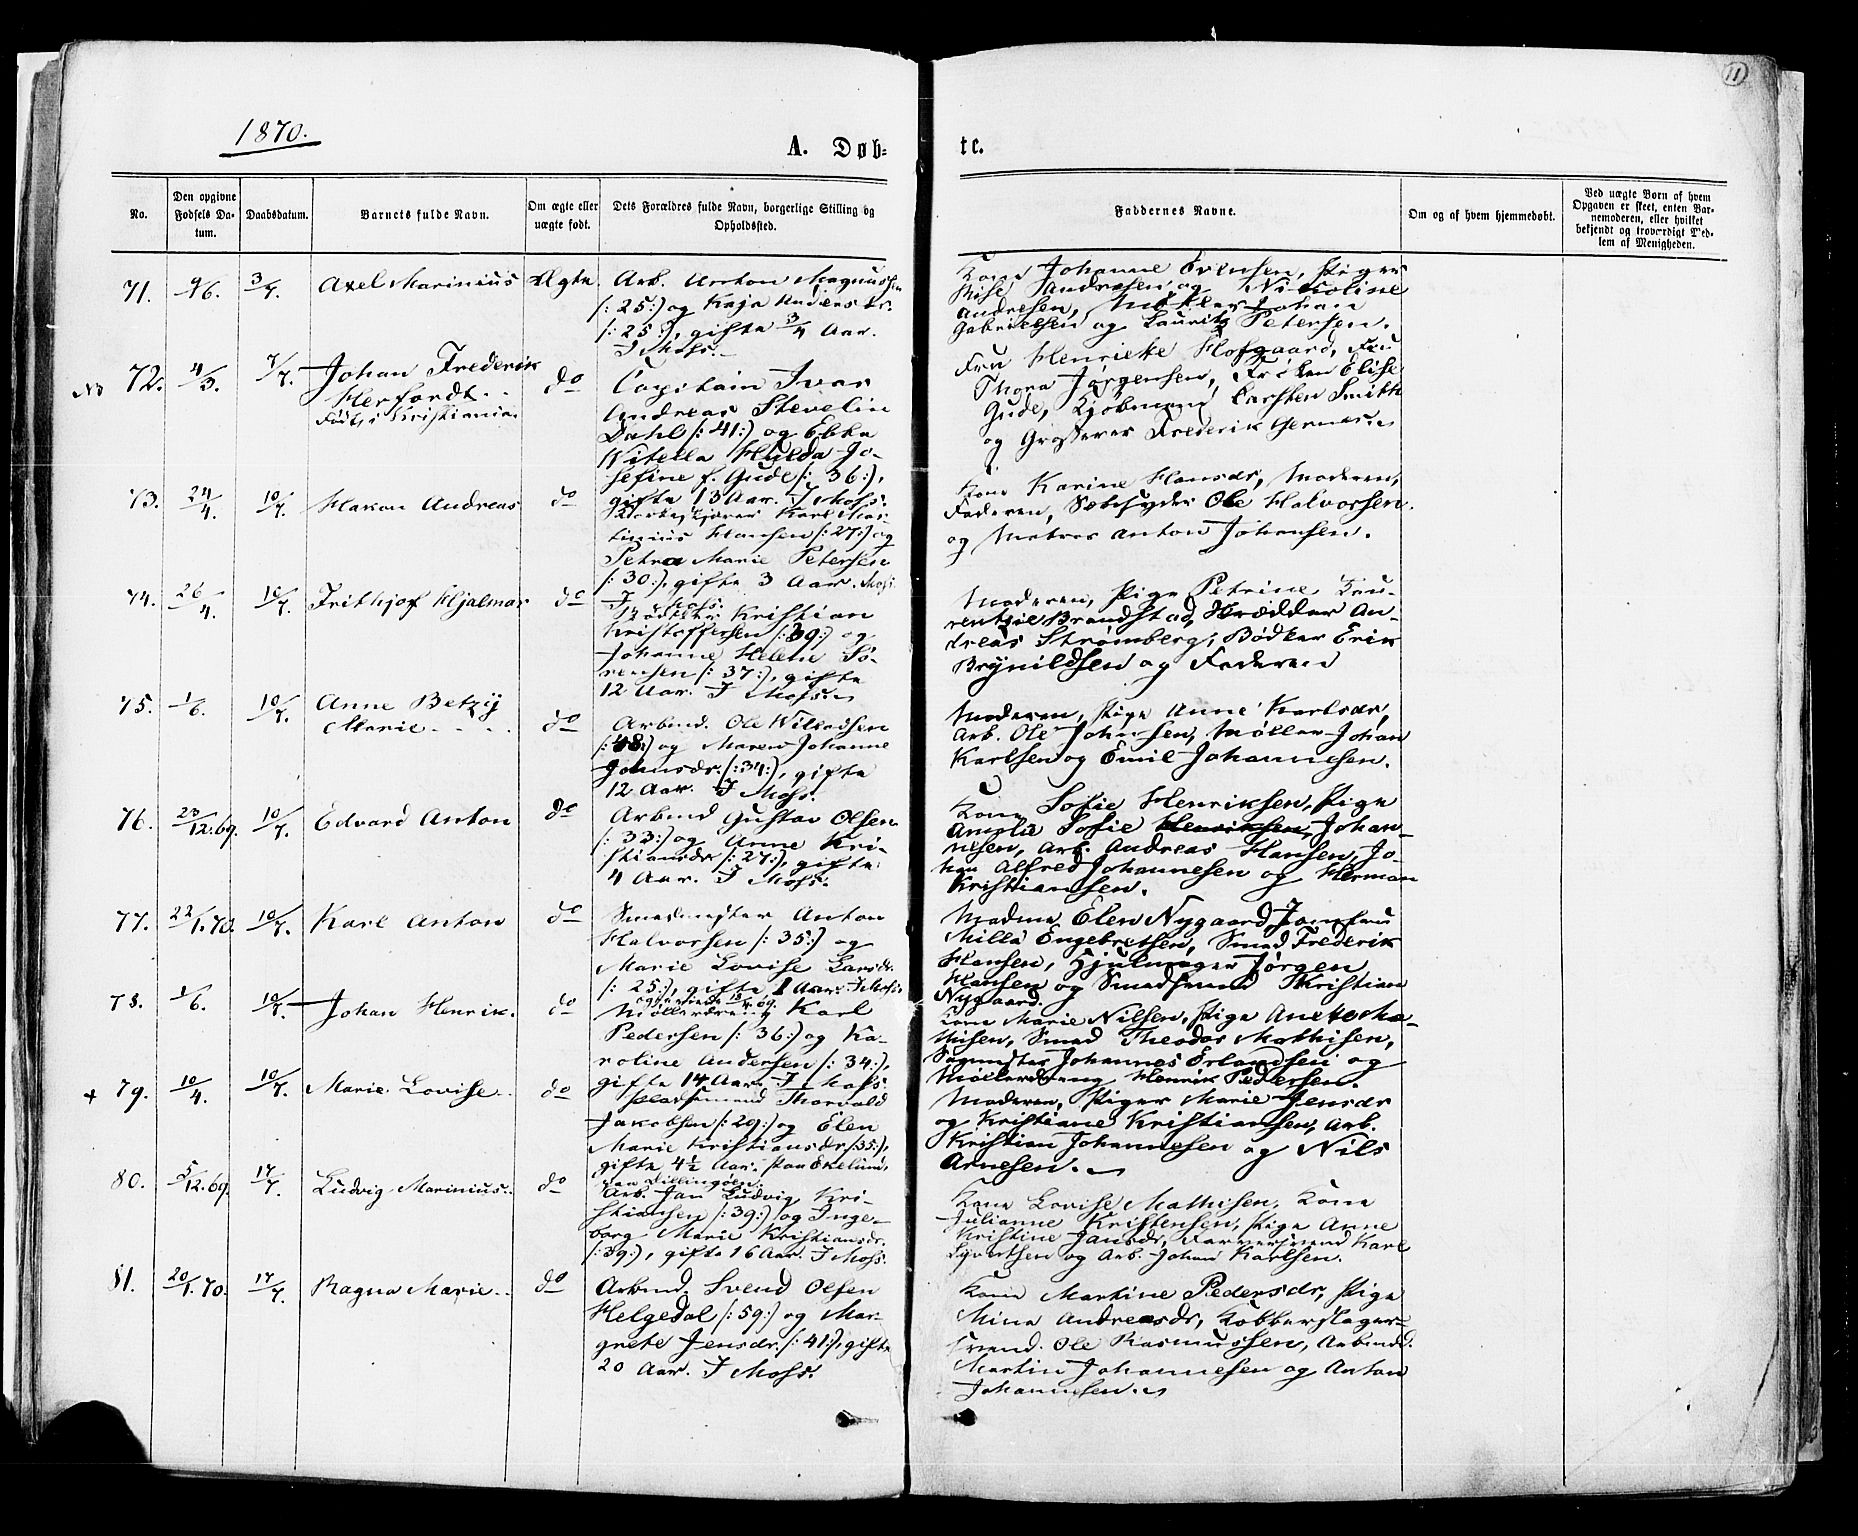 11
1870.
A. Døb-
te.
No.
Den opgivne
Fødsels Da-
tum.
Daabsdatum.
Barnets fulde Navn.
Om ægte eller
uægte født.
Dets Forældres fulde Navn, borgerlige Stilling og
Opholdssted.
Faddernes Navne.
Om og af hvem hjemmedøbt.
Ved uægte Børn af hvem
Opgaven er skeet, enten Bar-
nemoderen, eller hvilket
bekjendt og troværdigt Med-
lem af Menigheden.
71. 9/6. 3/7. Axel Marinius Ægte
Arb. Anton Magnussen
(:25:) og Kaja Andersdr.
(:25:), gifte 3/4 Aar.
I Moss.
Kone Johanne Evensen, Piger
Andresen og Nicoline
Andresen, Møller Johan
Gabrielsen og Lauritz Petersen.
72. 4/3. 7/7. Johan Frederik
Herfordt
Født i Kristiania
do
Capitain Ivar
Andreas Stevelin
Dahl (:41:) og Ebba
Vitella Hulda Jo-
sefine f. Gude (:36:),
gifte 13 Aar. I Moss.
Fru Henrieke Hofgaard, Fru
Thora Jørgensen, Frøken Elise
Gude, Kjøbmand Carsten Smith
og Grosserer Frederik
73. 24/4. 10/7. Hakon Andreas do
Karl Mar-
tinius Hansen (:27:) og
Petra Marie Petersen
(:30:), gifte 3 Aar.
I Moss.
Kone Karine Hansdr, Moderen,
Faderen, Ole Halvorsen
og Matros Anton Johansen.
74. 26/4. 10/7. Frithjof Hjalmar do
Kristian
Kristoffersen (:39:) og
Johanne Helene Sø-
rensen (:37:), gifte
12 Aar. I Moss.
Moderen, Pige Petrine Lau-
rentzie Brandstad, Skrædder An-
dreas Strømberg, Bødker Erik
Brynildsen og Faderen
75. 1/6. 10/7. Anne Betzy
Marie
do
Arbmd. Ole Willadsen
(:48:) og Maren Johanne
Johnsdr. (:34:), gifte
12 Aar. I Moss.
Moderen, Pige Anne Karlsdr,
Arb. Ole Johnsen, Møller Johan
Karlsen og Emil Johannesen.
76. 23/12.69. 10/7. Edvard Anton do
Arbmd Gustav Olsen
(:33:) og Anne Kri-
stiansdr (:27:), gifte
4 Aar. I Moss.
Kone Sofie Henriksen, Pige
Amalie Sofie Henriksen, Johan-
nesen, Arb. Andreas Hansen, Jo-
han Alfred Johannesen og Herman
Kristiansen.
77. 22/1.70. 10/7. Karl Anton do
Smedmester Anton
Halvorsen (:35:) og
Marie Lovise Larsdr.
(:25:), gifte 1 Aar. I Moss
Madme Elen Nygaard, Jomfru
Milla Engebretsen, Smed Frederik
Hansen, Hjulmager Jørgen
Hansen og Smedsvend Kristian
Nygaard.
78. 1/6. 10/7. Johan Henrik. do
Mølledreng Karl
Pedersen (:36:) og Ka-
roline Andersen (:34:),
gifte 14 Aar. I Moss
Kone Marie Nilsen, Pige Anette Ma-
thisen, Smed Theodor Mathisen,
Sagmester Johannes Erlandsen og
Mølledreng Henrik Pedersen.
+ 79. 10/4. 10/7. Marie Lovise do
Thorvald
Jakobsen (:29:) og Elen
Marie Kristiansdr (:35:),
gifte 4½ Aar. paa Ekelund,
paa Dillingøen.
Moderen, Piger Marie Jensdr
og Kristiane Kristiansen, Arb.
Kristian Johannesen og Nils
Arnesen.
80. 5/12.69. 17/7. Ludvig Marinius do
Arb. Jan Ludvig Kri-
stiansen (:39:) og Inge-
borg Marie Kristiansdr.
(:39:), gifte 16 Aar. I Moss.
Kone Lovise Mathisen, Kone
Julianne Kristensen, Pige Anne
Kristine Jansdr, Farversvend Karl
Syvertsen og Arb. Johan Karlsen.
81. 20/1.70. 17/7. Ragna Marie do
Arbmd. Svend Olsen
Helgedal (:59:) og Mar-
grete Jensdr. (:41:), gifte
20 Aar. I Moss.
Kone Martine Pedersdr, Pige
Mina Andreasdr, Kobberslager-
svend Ole Rasmussen, Arbmd.
Martin Johannesen og Anton
Johannesen.